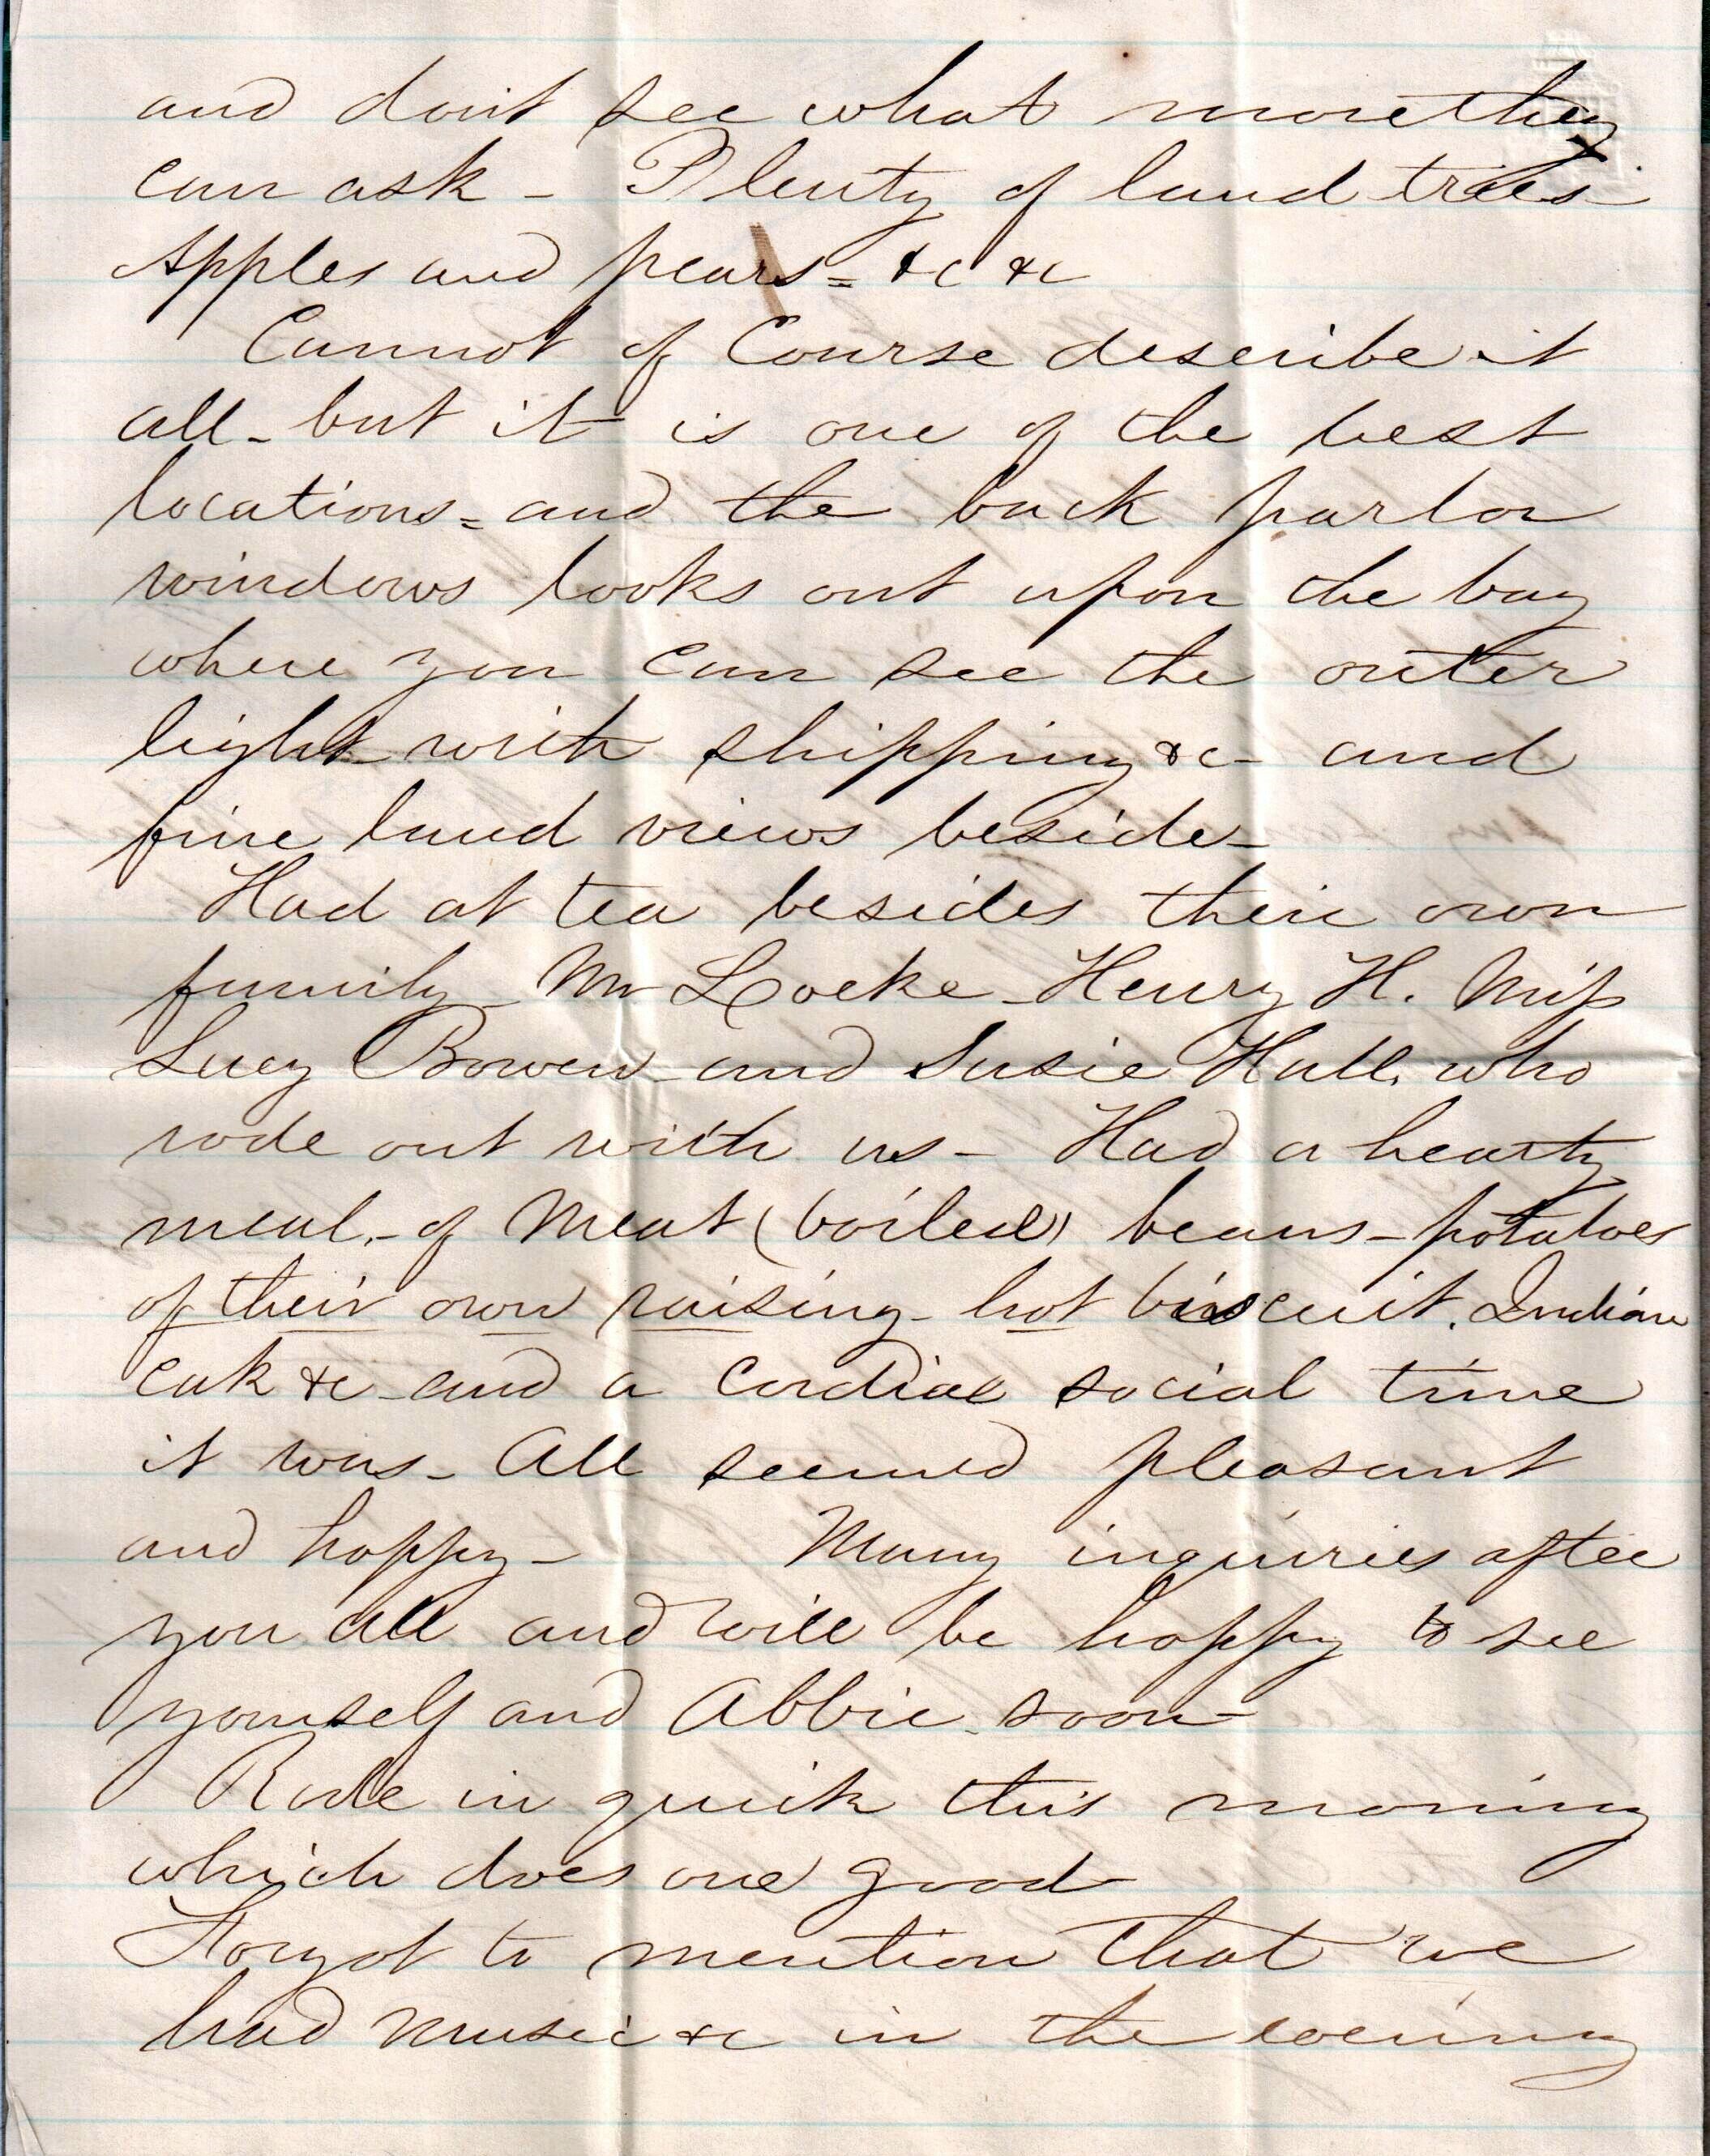 and don't see what more they
can ask - Plenty of land trees -
Apples and pears = &c &c
Cannot of Course describe it
all - but it is one of the best
locations = and the back parlor
windows looks out upon the bay
where you can see the outer
light - with shipping &c - and
fine land views beside -
Had at tea besides their own
family - Mr Locke - Henry H. Miss
Lucy Bowen - and Susie Hall, who
rode out with us - Had a hearty
meal, - of Meat (boiled) beans - potatoes
of their own raising - hot biscuit. Indian
cak &c - and a Cordial social time
it was - All seemed pleasant
and happy - Many inquiries after
you all and will be happy to see
yourself and Abbie - soon -
Rode in quick this morning
which does one good
Forgot to mention that we
had music &c in the evening